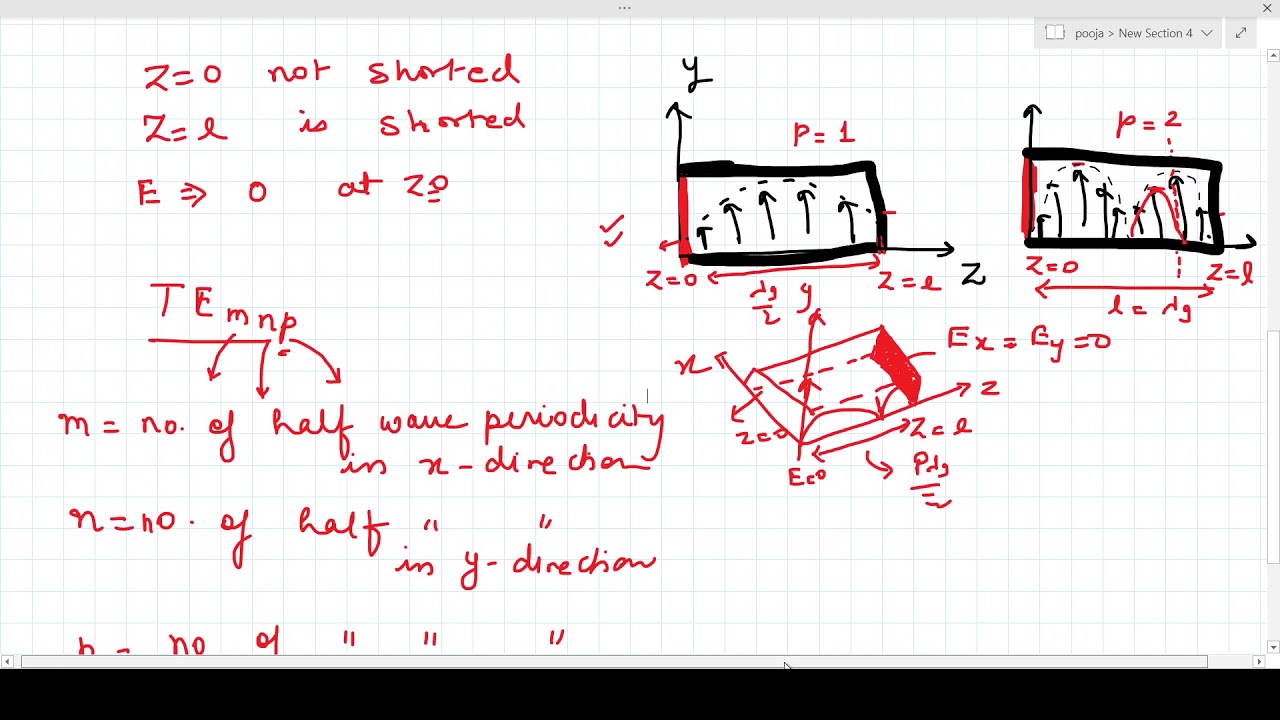 pooja > New Section 4
Z=0 not shorted
Z=l is shorted
E ⇒ 0 at Z0
TE mnp
m = no. of half wave periodicity
in x-direction
n=no. of half " "
in y-direction
p = no of " " "
y
P=1
Z=0
Z=l
Z
λg/2
P=2
Z=0
Z=l
l=λg
y
x
Ex = Ey=0
z
Z=0
Z=l
E=0
Pλg/2